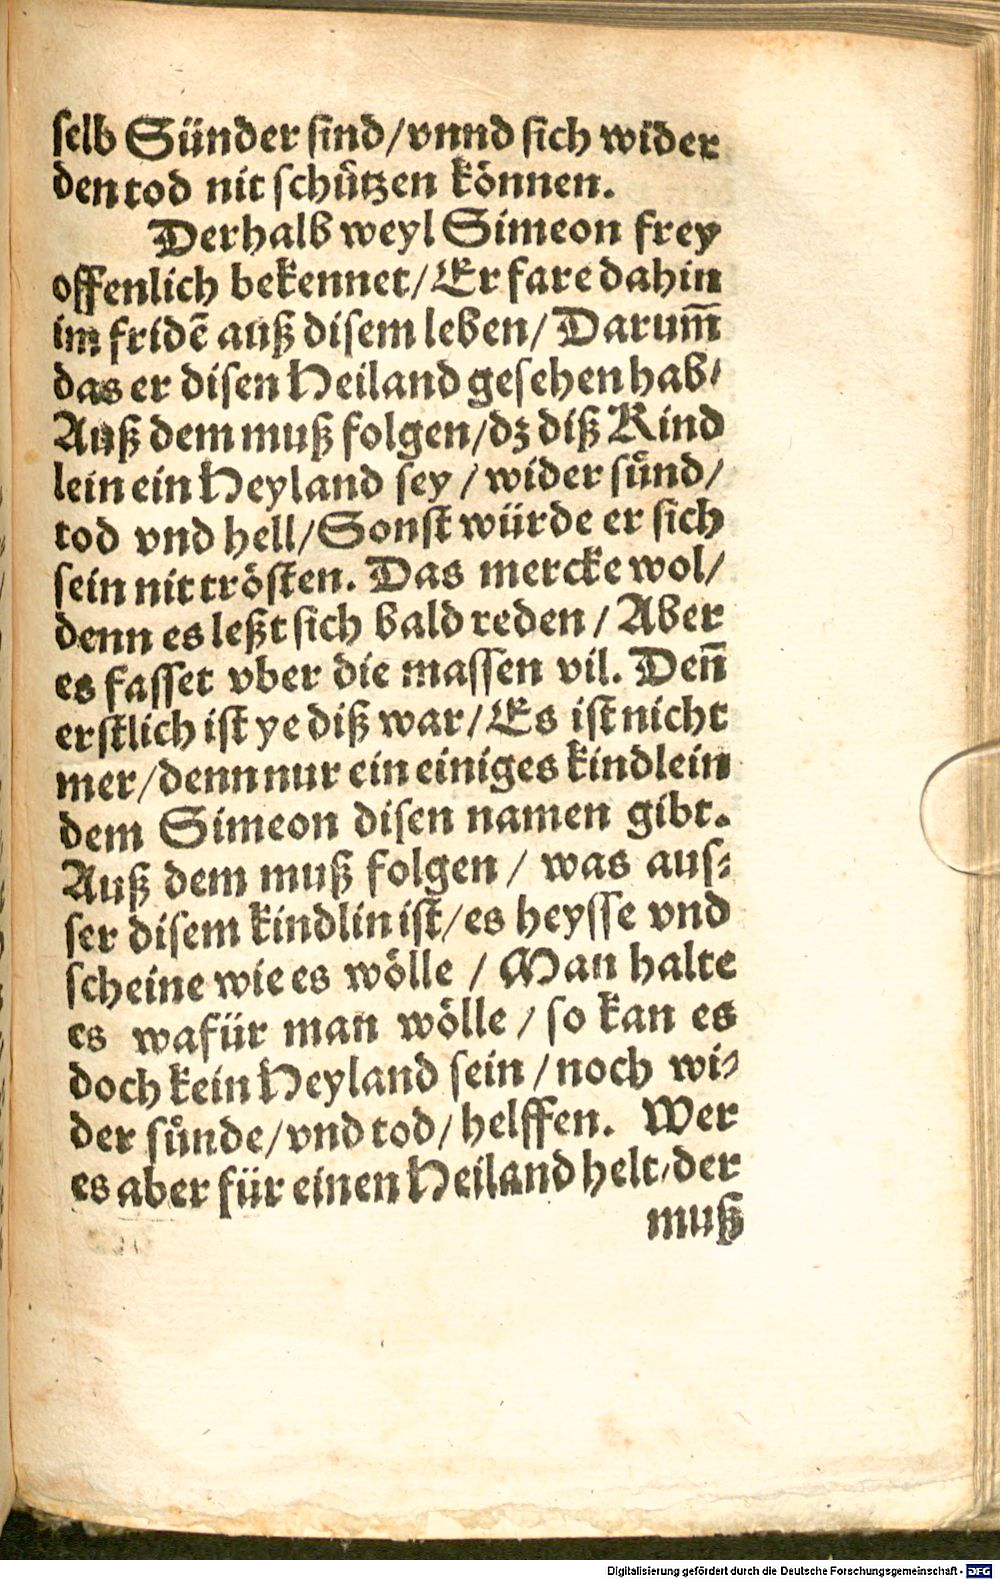 selb Sünder sind/vnnd sich wider
den tod nit schůtzen können.
Derhalb weyl Simeon frey
offenlich bekennet/Er fare dahin
im fridē auß disem leben/Darum̃
das er disen Heiland gesehen hab/
Auß dem muß folgen/dz diß Kind
lein ein Heyland sey/wider sůnd/
tod vnd hell/Sonst würde er sich
sein nit trösten. Das mercke wol/
denn es leßt sich bald reden/Aber
es fasset vber die massen vil. Deñ
erstlich ist ye diß war/Es ist nicht
mer/denn nur ein einiges kindlein
dem Simeon disen namen gibt.
Auß dem muß folgen/was aus-
ser disem kindlin ist/es heysse vnd
scheine wie es wölle/Man halte
es wafür man wölle/so kan es
doch kein Heyland sein/noch wi-
der sůnde/vnd tod/helffen. Wer
es aber für einen Heiland helt/der
muß
Digitalisierung gefördert durch die Deutsche Forschungsgemeinschaft - DFG